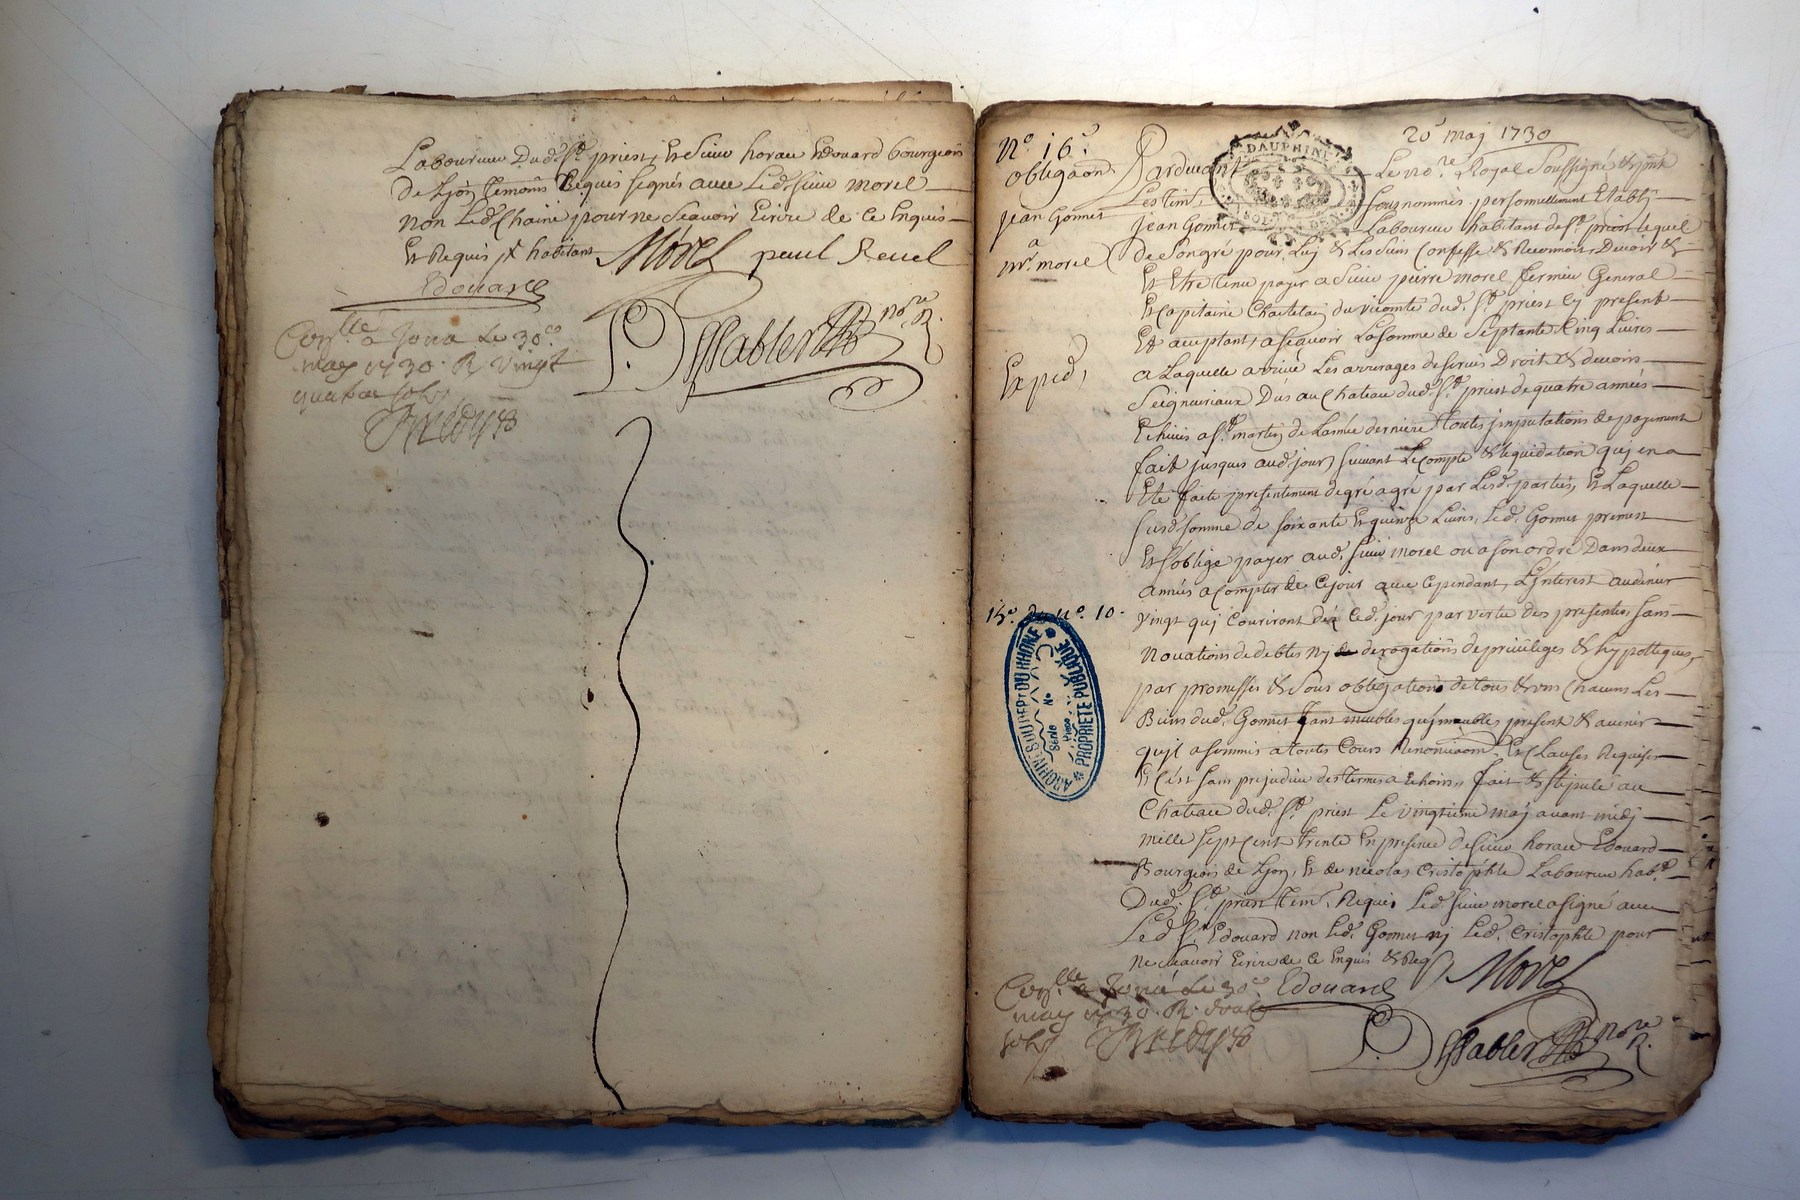 Laboureur Dud. St. priest, Et Sieur horace Edouard bourgeois
de Lyon temoins Requis signés avec Led. sieur morel
non Led. Chaine pour ne scavoir Ecrire de ce Enquis
Et Requis habitant Morel paul Revel
Edouard
Conlle. a Jona Le 30e.
may 1730. R. vingt
quatre sols
nore. R.
20e maj 1730
No. 16e.
obligaon
jean Gonnet
a
mr. morel
Exped,
15e. du no. 10.
DAUPHINE
Pardevant Le nore. Royal Soussigné & pnt
Les tem. sousnommés personnellement Etably
jean Gonnet Laboureur habitant de St. priest lequel
de Son gré pour Luy & Les Siens Confesse & Reconnoit Devoir &
Et Etre tenu payer a Sieur pierre morel fermier General
Et Capitaine Chatelain du vicomté dud. St. priest Cy present
Et acceptant, a scavoir La Somme de Septante Cinq Livres
a Laquelle arrive Les arrerages de servis Droit & devoirs
Seigneuriaux Dus au Chateau dud. St. priest de quatre années
Echues a St. martin de L'année derniere toutes jmputations de payement
fait jusques aud. jour suivant Le compte & liquidation qui en a
Eté faite presentement de gré a gré par Lesd. parties, Et Laquelle
susd. somme de soixante Et quinze Livres, Led. Gonnet promet
Et s'oblige payer aud. sieur morel ou a son ordre Dans deux
années a compter de Cejour avec Cependant, L'jnterest au denier
vingt quj Couriront dés Ced. jour par vertu des presentes, sans
Novations de debtes nj derogations de privileges & hypotteques,
par promesses & Sous obligations de tous & uns Chacuns Les
Biens dud. Gonnet tant meubles qu'jmmeubles present & avenir
qu'il a soumis a toutes Cours Renonciaon. Et Clauses Requises
Et C'est sans prejudice des termes a Echoirs, fait & stipulé au
Chateau dud. St. priest Le vingtieme maj avant midj
mille sept Cent trente En presence de sieur horace Edouard
Bourgeois de Lyon, Et de nicolas Cristophle Laboureur habt.
Dud. St. priest tem. Requis Led. sieur morel a signé avec
Led. Sr. Edouard non Led. Gonnet nj Led. Cristophle pour
ne scavoir Ecrire de ce Enquis & Req Morel
Edouard
Conlle. a Jona Le 30e.
may 1730. R. douze
sols
nore. R.
ARCHIVES DU DEPT DU RHÔNE
PROPRIETE PUBLIQUE
Série No
Pièce